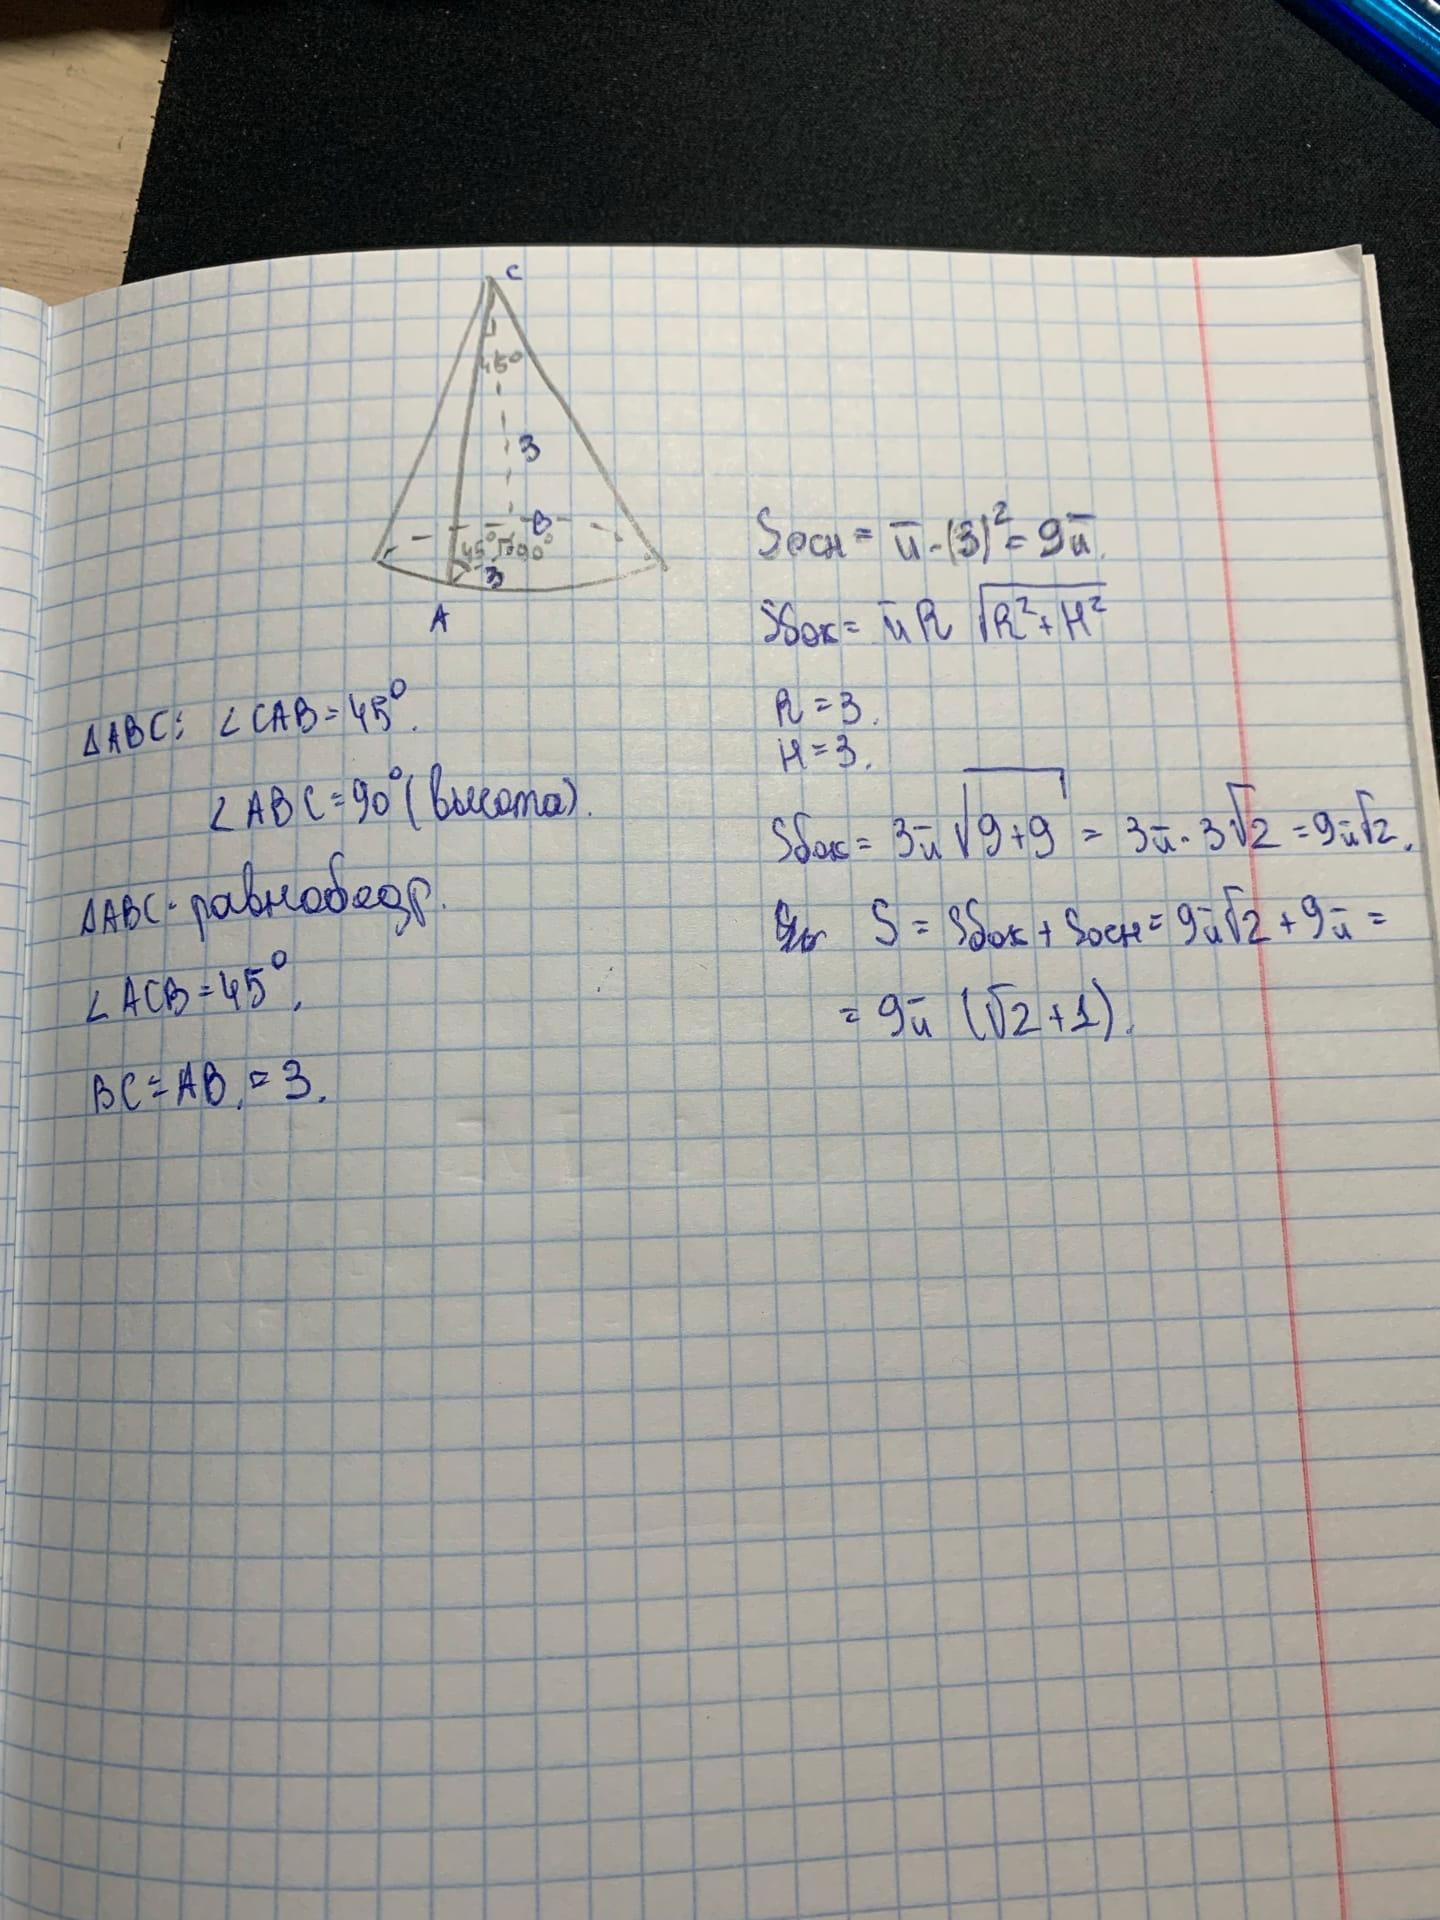 C
45°
3
B
45° 90°
3
A
ΔABC: ∠CAB=45°.
∠ABC=90° (высота).
ΔABC - равнобедр.
∠ACB=45°.
BC=AB.=3.
Sосн = π·(3)²=9π.
Sбок= πR √(R²+H²)
R=3.
H=3.
Sбок= 3π √(9+9) = 3π·3√2 =9π√2.
S = Sбок+Sосн=9π√2+9π=
= 9π (√2+1).